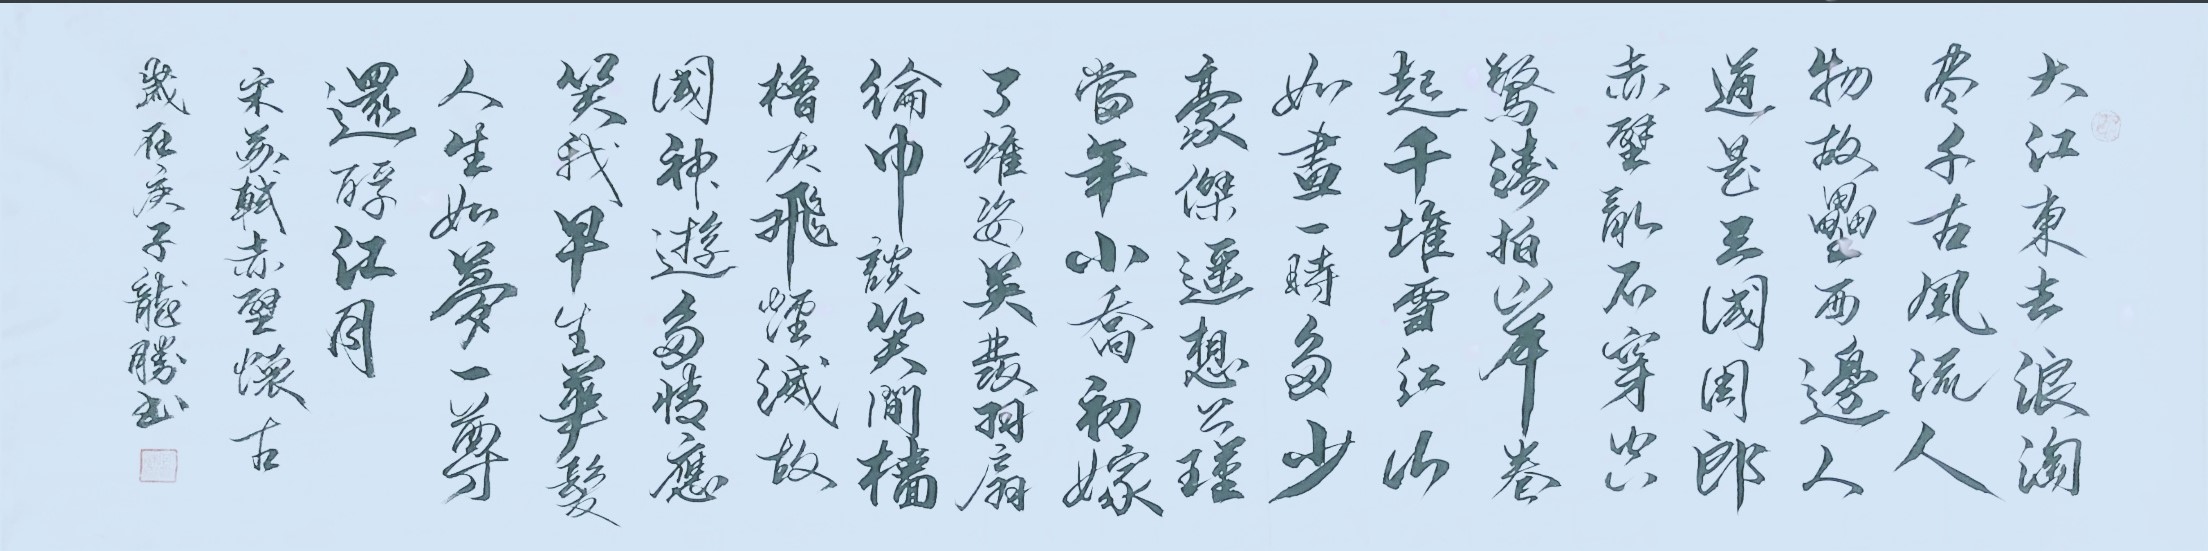 大江東去浪淘
尽千古風流人
物故壘西邊人
道是三國周郎
赤壁亂石穿空
驚濤拍岸卷
起千堆雪江山
如畫一時多少
豪傑遥想公瑾
當年小喬初嫁
了雄姿英發羽扇
綸巾談笑間檣
櫓灰飛煙滅故
國神遊多情應
笑我早生華髮
人生如夢一尊
還酹江月
宋苏軾赤壁懷古
歲在庚子龍勝书